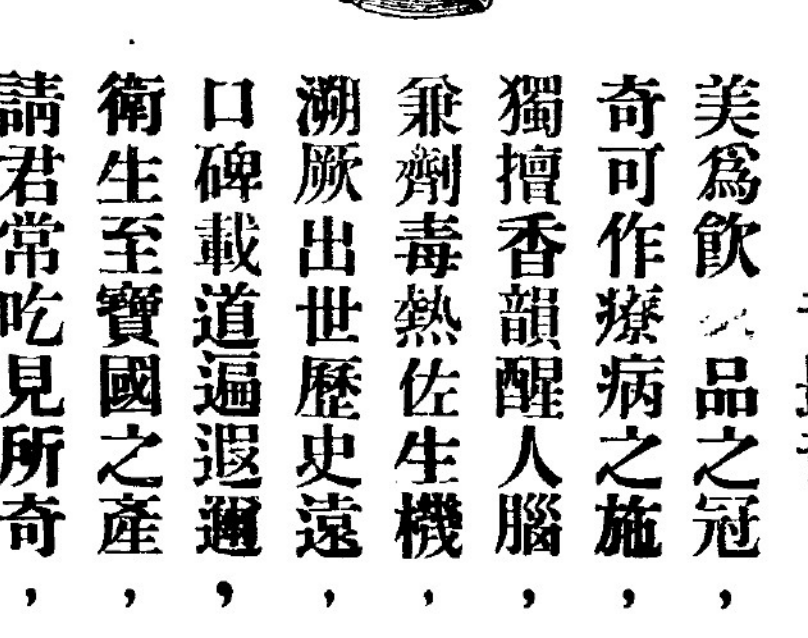 美爲飲品之冠，
奇可作療病之施，
獨擅香韻醒人腦，
兼劑毒熱佐生機，
溯厥出世歷史遠，
口碑載道遍遐邇，
衛生至寶國之產，
請君常吃見所奇，